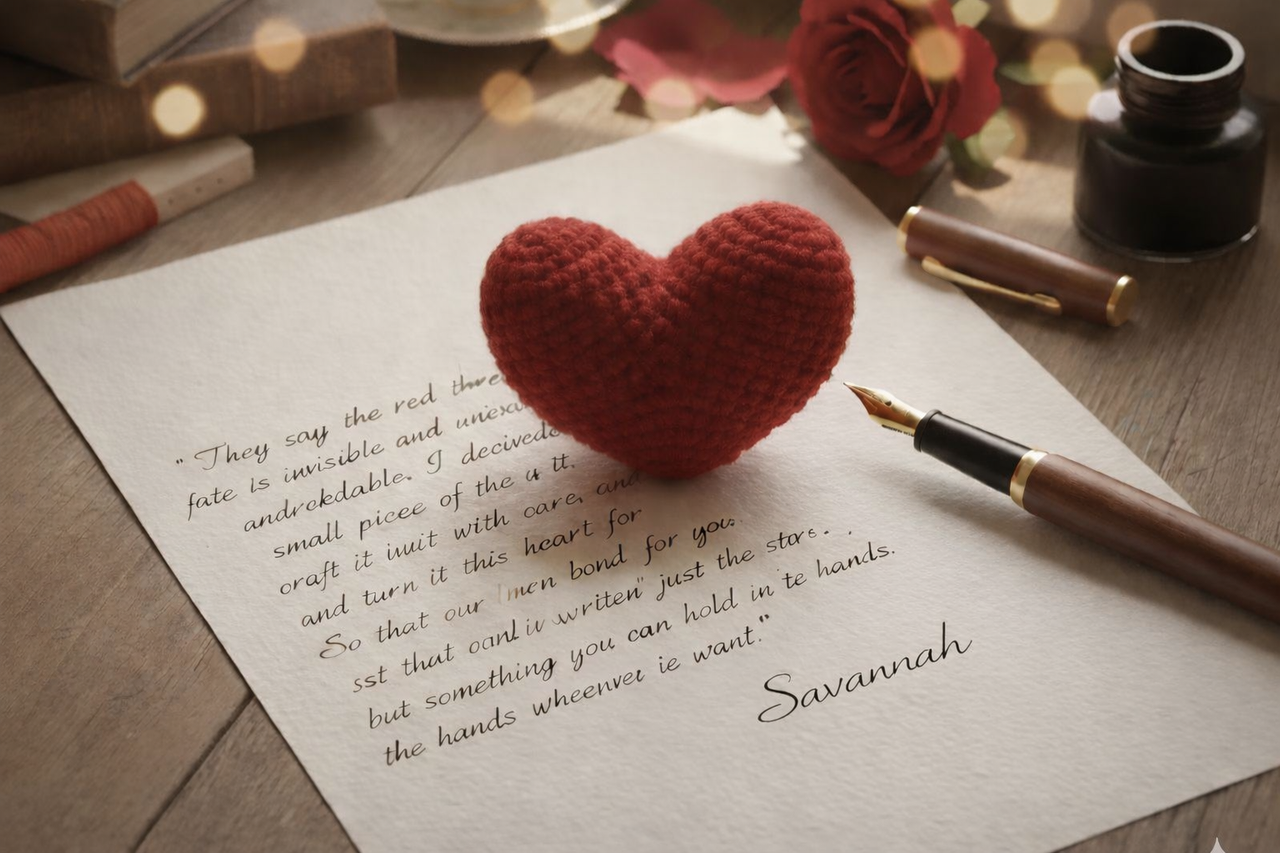 "They say the red thre
fate is invisible and unexa
andrekdable. I decivede
small picee of the u it.
oraft it iuuit with oare, and
and turn it this heart for
So that our men bond for you.
sst that oanl iv writen" just the stors. .
but something you can hold in te hands.
the hands wheenver ie want."
Savannah